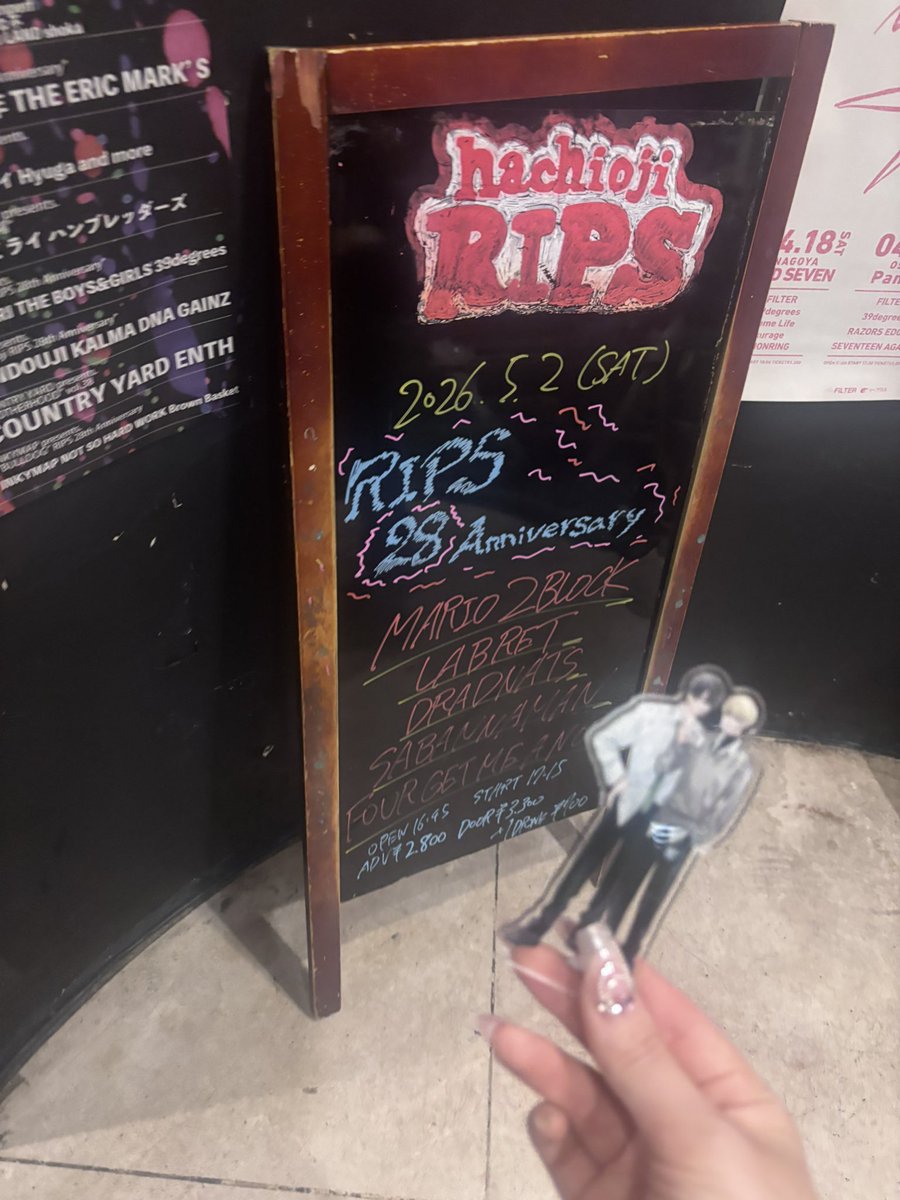 shoka
THE ERIC MARK'S
Hyuga and more
ライ ハンブレッダーズ
RIPS 28th Anniversary
THE BOYS&GIRLS 39degrees
RIPS 28th Anniversary
NDOUJI KALMA DNA GAINZ
COUNTRY YARD ENTH
RIPS 28th Anniversary
INKYMAP NOT SO HARD WORK Brown Basket
hachioji
RIPS
2026.5.2 (SAT)
RIPS
28 Anniversary
MARIO 2BLOCK
LABRET
DRADNATS
SABANNAMAN
FOUR GET ME A NOTS
OPEN 16:45 START 17:15
ADV ¥2.800 DOOR ¥3.300
1DRINK
4.18 SAT
NAGOYA
SEVEN
FILTER
degrees
Life
04
Pan
FILTER
39degrees
RAZORS EDGE
SEVENTEEN AGA
FILTER